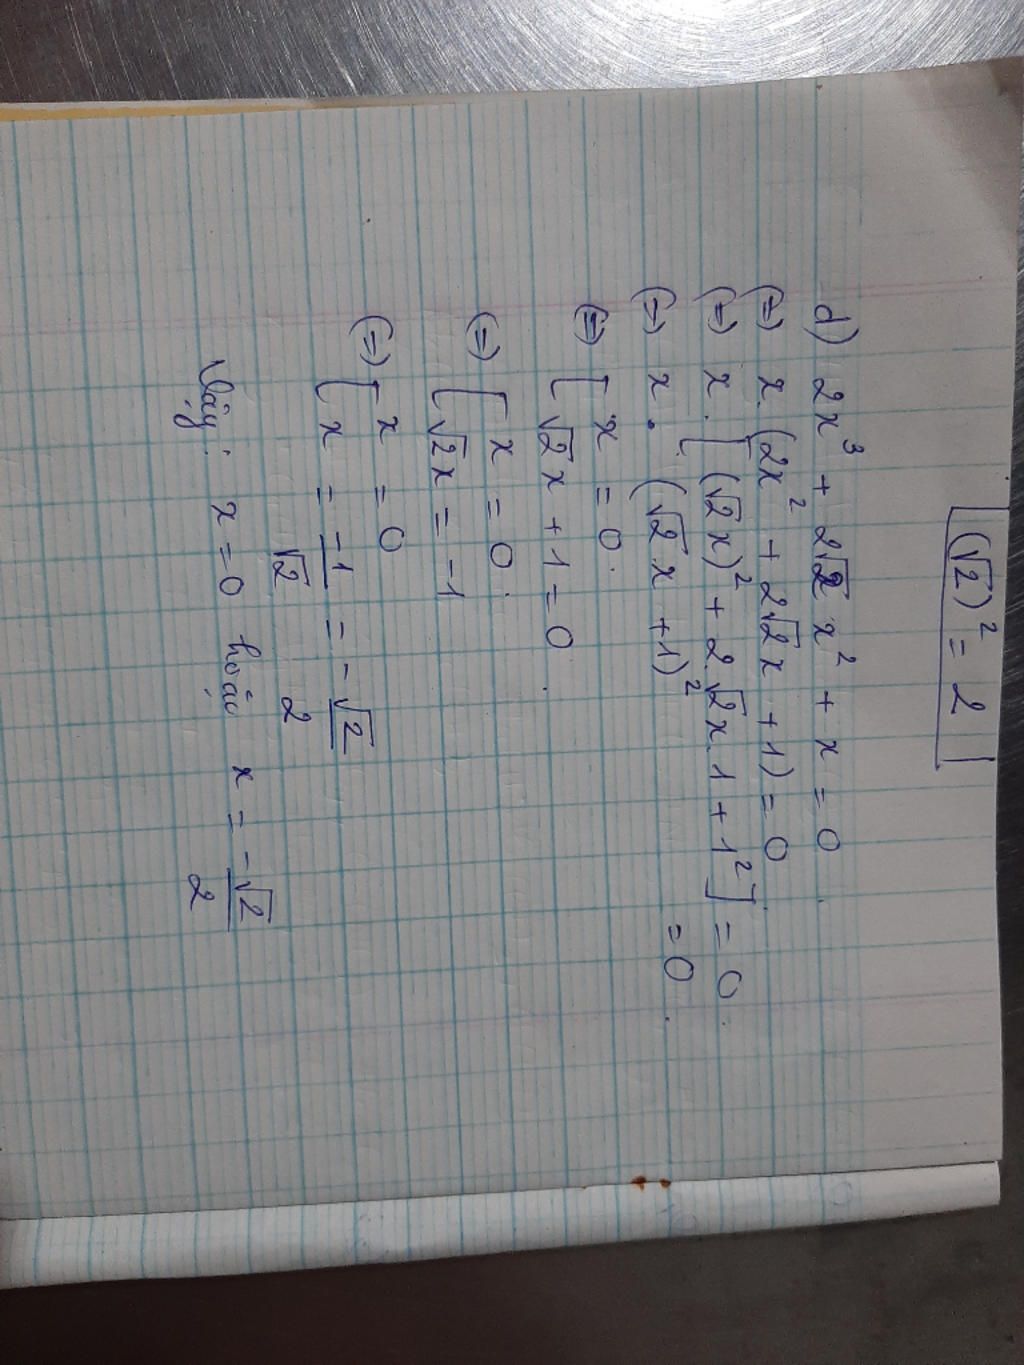 (√2)² = 2
d) 2x³ + 2√2 x² + x = 0
(=) x.(2x² + 2√2x + 1) = 0
(=) x.[(√2x)² + 2.√2x.1 + 1²] = 0
(=) x.(√2x + 1)² = 0
(=) [x = 0
√2x + 1 = 0
(=) [x = 0
√2x = -1
(=) [x = 0
x = -1/√2 = -√2/2
Vậy: x = 0 hoặc x = -√2/2